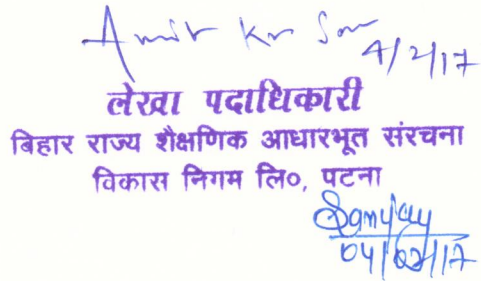 Amit Kr Som
4/2/17
लेखा पदाधिकारी
बिहार राज्य शैक्षणिक आधारभूत संरचना
विकास निगम लि०, पटना
Sanjay
04/02/17